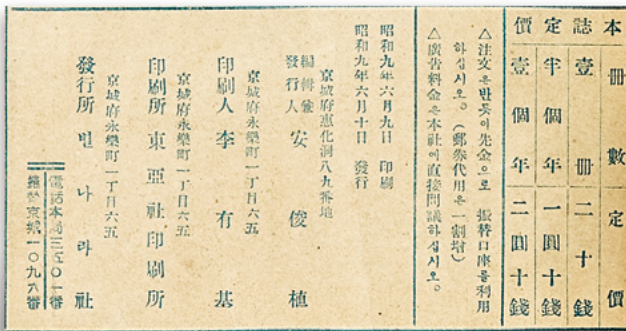 本誌定價
冊數 定價
壹冊 二十錢
半個年 一圓十錢
壹個年 二圓十錢
△注文은반듯이先金으로 振替口座를利用
하십시오。(郵券代用은一割增)
△廣告料金은本社에直接問議하십시오。
昭和九年六月九日 印刷
昭和九年六月十日 發行
京城府惠化洞八九番地
編輯兼
發行人 安俊植
京城府永樂町一丁目六五
印刷人 李有基
京城府永樂町一丁目六五
印刷所 東亞社印刷所
京城府永樂町一丁目六五
發行所 별나라社
電話本局三五〇一番
振替京城一〇九六番